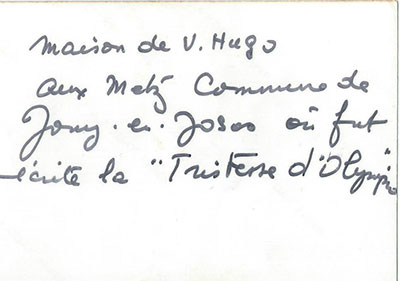 Maison de V. Hugo
aux Metz Commune de
Jouy-en-Josas où fut
écrite la "Tristesse d'Olympio"